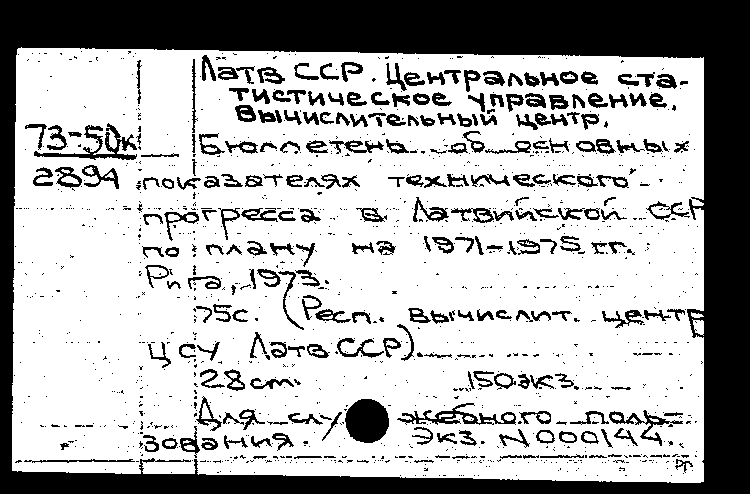 Латв ССР. Центральное ста-
тистическое управление.
Вычислительный центр.
73-50к
Бюллетень об основных
2894
показателях технического
прогресса в Латвийской ССР
по плану на 1971-1975 гг.
Рига, 1973.
75с. (Респ. вычислит. центр
ЦСУ Латв ССР).
28 cm. 150 экз.
Для служебного поль-
зования. Экз. N 000144.
рг